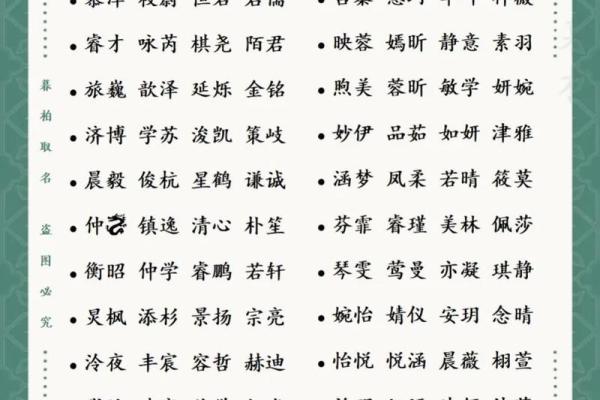 睿才 咏芮 棋尧 陌君
旅巍 歆泽 延烁 金铭
济博 学苏 浚凯 策岐
晨毅 俊杭 星鹤 谦诚
仲 镇逸 清心 朴笙
衡昭 仲学 睿鹏 若轩
炅枫 添杉 景扬 宗亮
泠夜 丰宸 容哲 赫迪
映蓉 嫣昕 静意 素羽
煦美 蓉昕 敏学 妍婉
妙伊 品茹 如妍 津雅
涵梦 凤柔 若晴 筱莫
芬霏 睿瑾 美林 佩莎
琴雯 莺曼 亦凝 琪静
婉怡 婧仪 安玥 念晴
怡悦 悦涵 晨薇 栩萱
暮柏取名 盗图必究